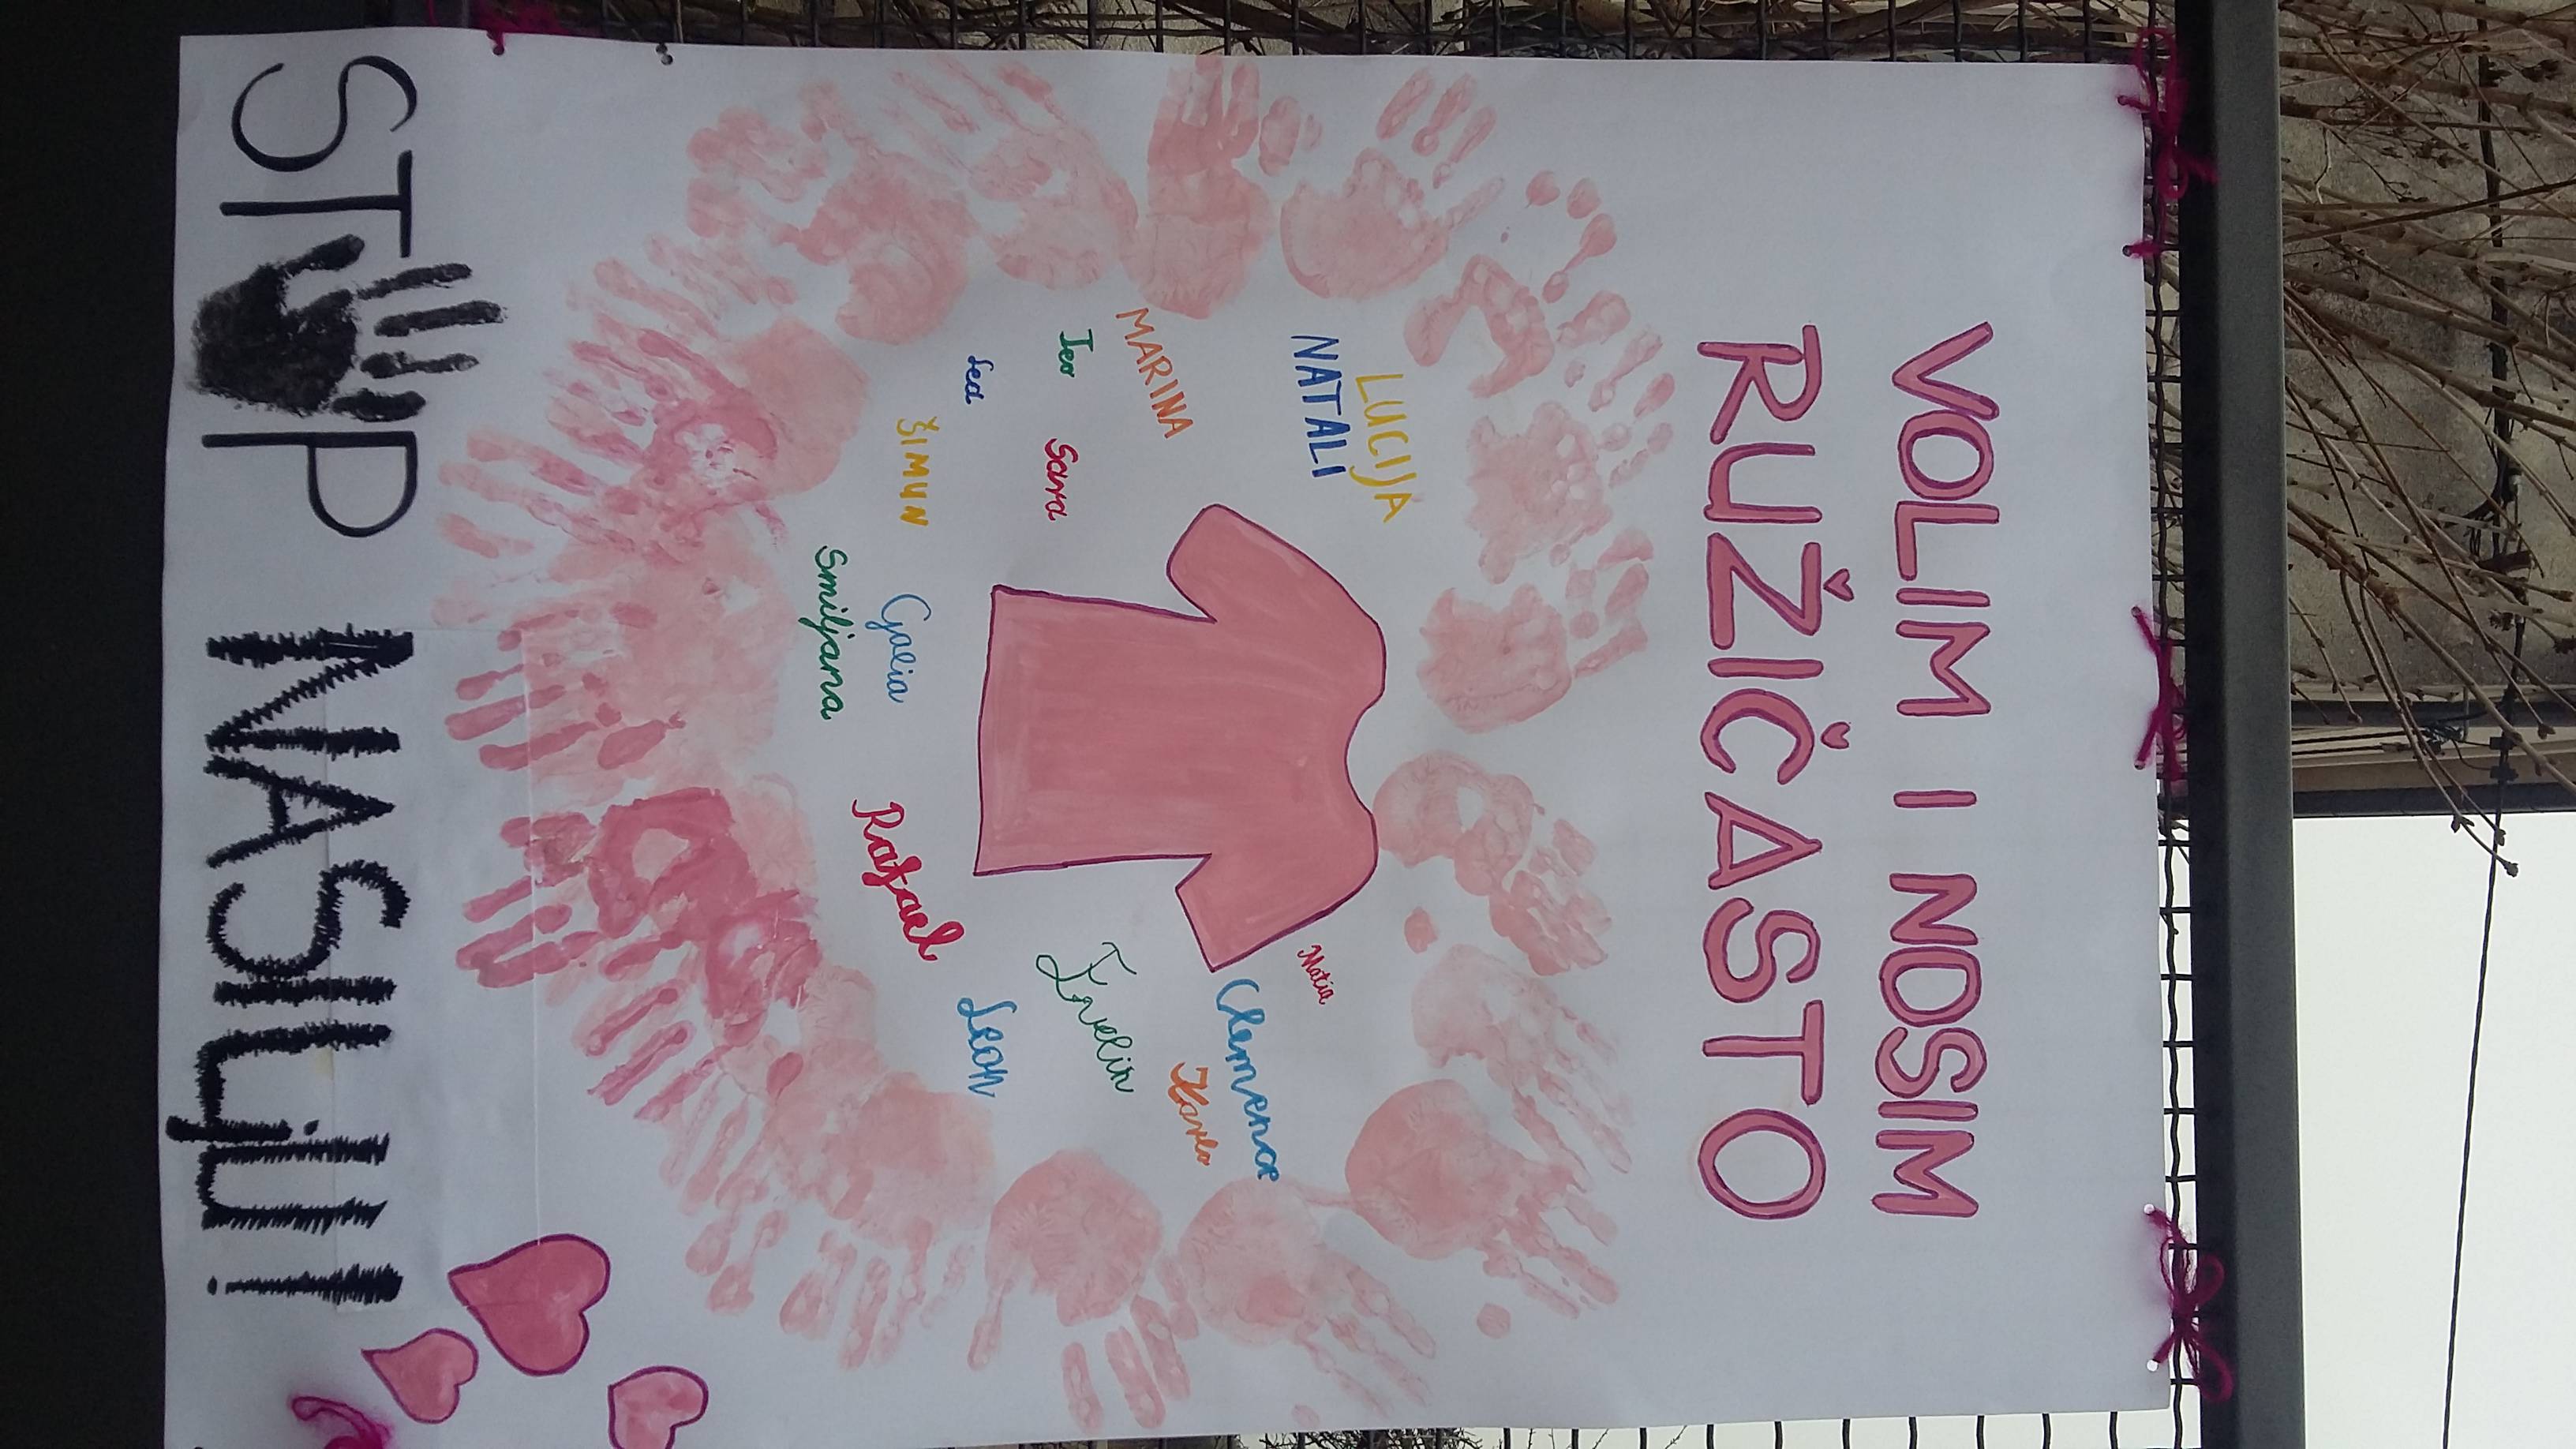 VOLIM I NOSIM
RUŽIČASTO
LUCIJA
NATALI
Matia
Clemence
Karlo
MARINA
Teo
Sara
Evelin
Lea
Leon
ŠIMUN
Galia
Rafael
Smiljana
STOP NASILJU!